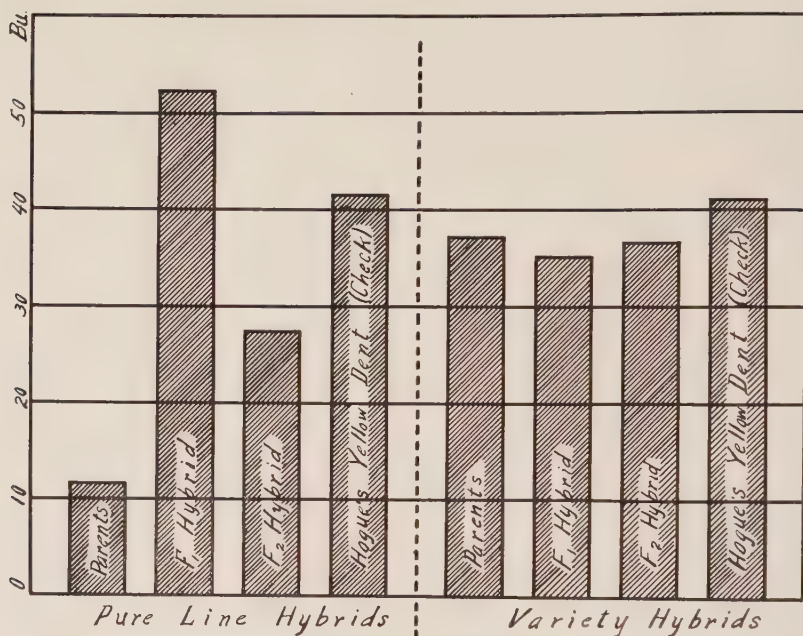 Bu.
50
40
30
20
10
0
Parents
F₁ Hybrid
F₂ Hybrid
Hogue's Yellow Dent (Check)
Parents
F₁ Hybrid
F₂ Hybrid
Hogue's Yellow Dent (Check)
Pure Line Hybrids
Variety Hybrids